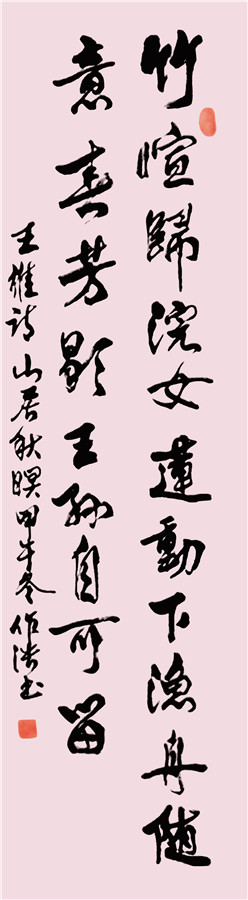 竹暄歸浣女蓮動下漁舟随
意春芳歇王孫自可留
王維詩山居秋暝甲午冬书